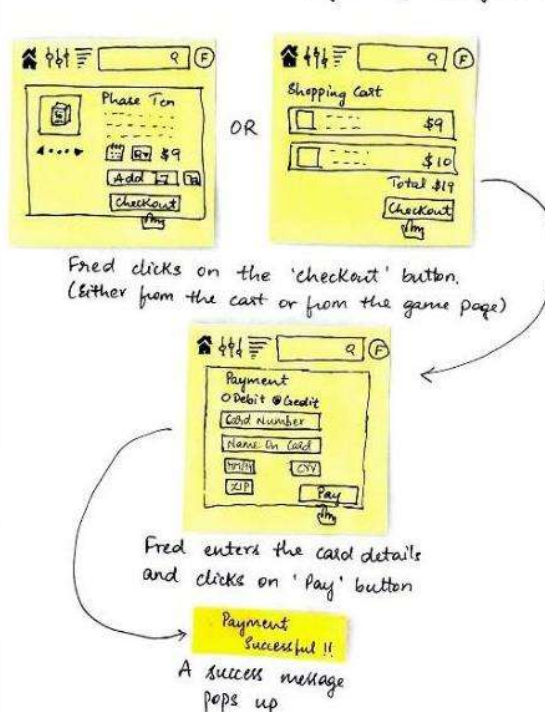 F
Phase Ten
$9
Add
Checkout
OR
F
Shopping Cart
$9
$10
Total $19
Checkout
Fred clicks on the 'checkout' button.
(Either from the cart or from the game page)
F
Payment
Debit Credit
Card Number
Name On Card
MM/YY CVV
ZIP
Pay
Fred enters the card details
and clicks on 'Pay' button
Payment
Successful !!
A success message
pops up